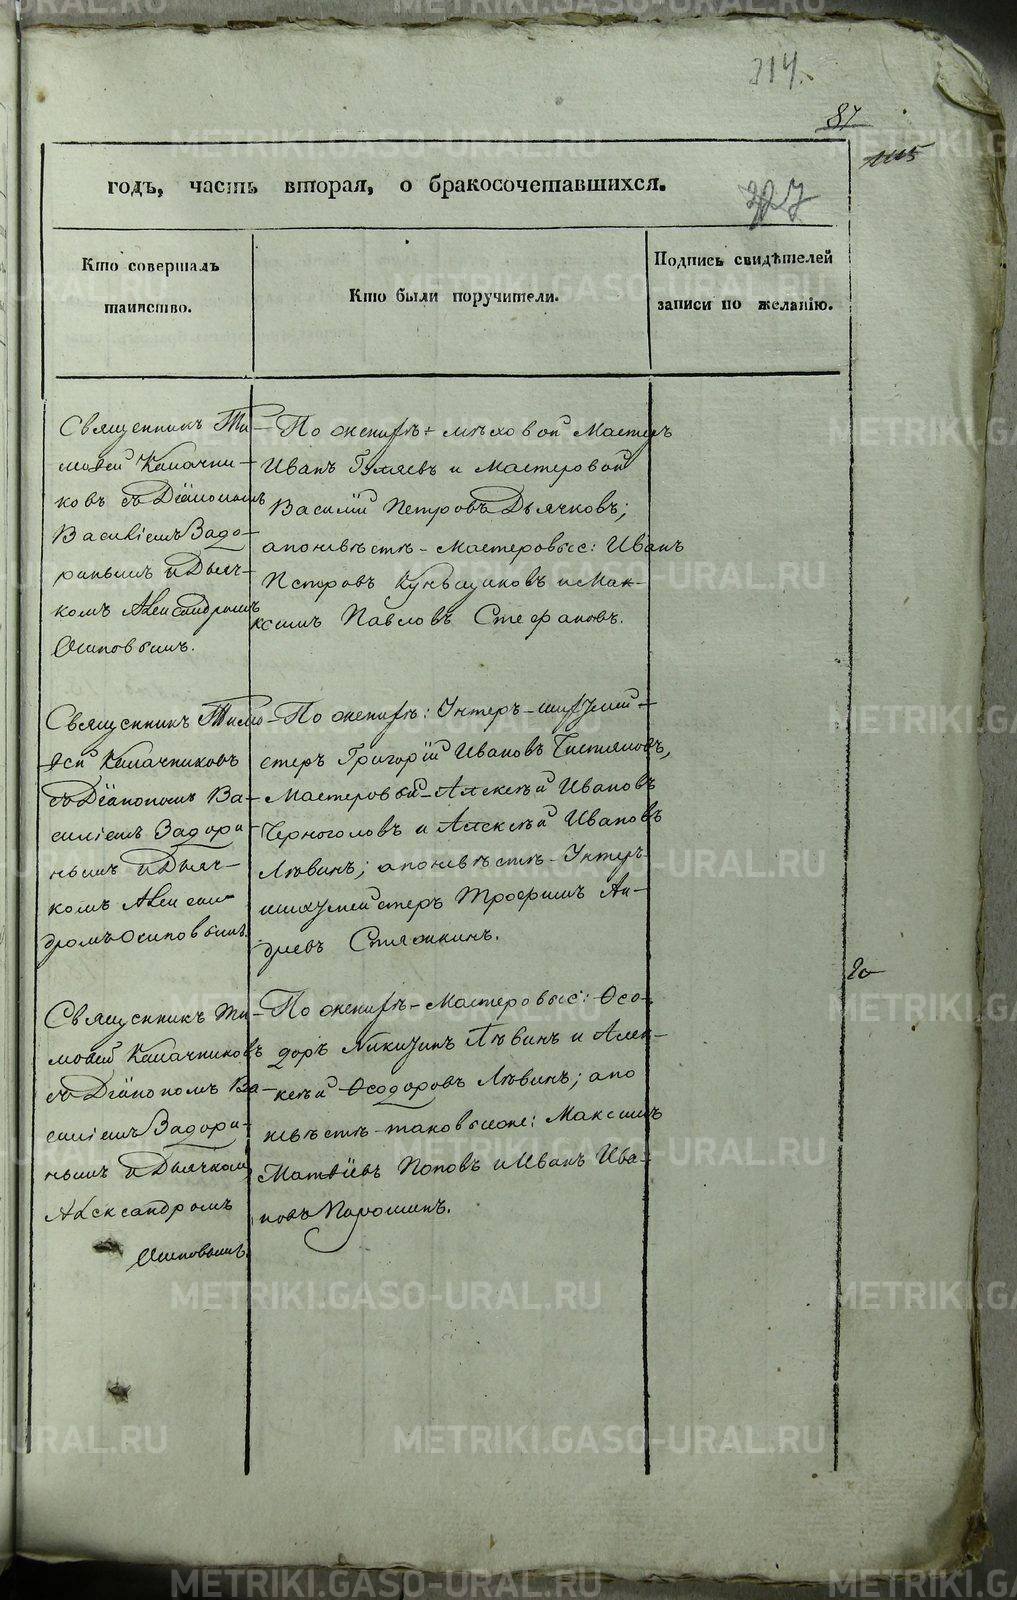 314.
87
1115
годъ, часть вторая, о бракосочетавшихся.
327
Кто совершалъ
таинство.
Кто были поручители.
Подпись свидѣтелей
записи по желанію.
Священникъ Ти-
моѳей Калачни-
ковъ съ Діакономъ
Василіемъ Задо-
ринымъ и Дьяч-
комъ Александромъ
Осиповымъ.
По женихѣ: мѣховой Мастеръ
Иванъ и Мастеровой
Василій Петровъ Дьячковъ;
а по невѣстѣ - Мастеровые: Иванъ
Петровъ Куньщиковъ и Мак-
симъ Павловъ Стефановъ.
Священникъ Тимо-
ѳей Калачниковъ
съ Діакономъ Ва-
силіемъ Задори-
нымъ и Дьяч-
комъ Алексан-
дромъ Осиповымъ.
По женихѣ: Унтеръ-шихтмей-
стеръ Григорій Ивановъ Чистяковъ,
Мастеровый - Алексѣй Ивановъ
Черноголовъ и Алексѣй Ивановъ
Лѣвинъ; а по невѣстѣ - Унтеръ-
шихтмейстеръ Трофимъ Ан-
дреевъ Стяжкинъ.
Священникъ Ти-
моѳей Калачниковъ
съ Діакономъ Ва-
силіемъ Задори-
нымъ и Дьячкомъ
Александромъ
Осиповымъ.
По женихѣ - Мастеровые: Ѳео-
доръ Никитинъ Лѣвинъ и Алек-
сѣй Ѳеодоровъ Лѣвинъ; а по
невѣстѣ - таковые же: Максимъ
Матвѣевъ Поповъ и Иванъ Ива-
новъ Порошинъ.
METRIKI.GASO-URAL.RU